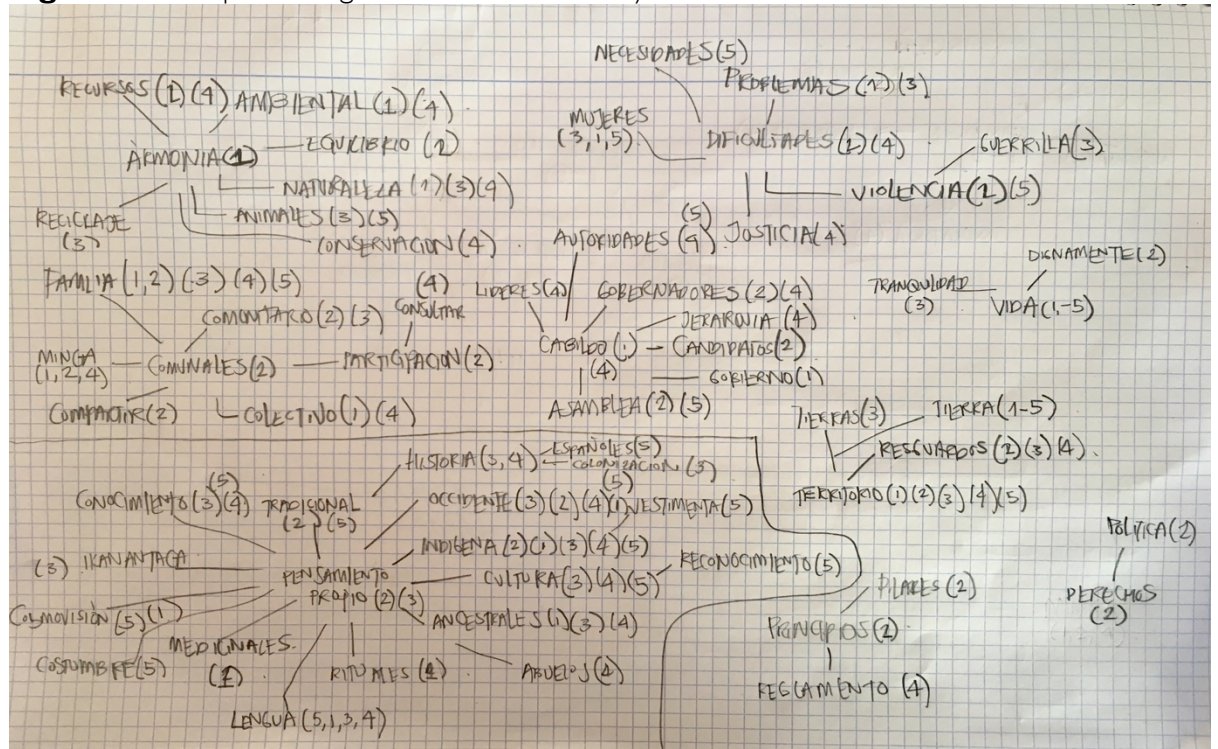 NECESIDADES (5)
PROBLEMAS (1) (3)
RECURSOS (1) (4)
AMBIENTAL (1) (4)
MUJERES
(3,1,5)
DIFICULTADES (1) (4)
GUERRILLA (3)
ARMONIA (1)
EQUILIBRIO (2)
NATURALEZA (1) (3) (4)
VIOLENCIA (1) (5)
ANIMALES (3) (5)
RECICLAJE
(3)
CONSERVACION (4)
(5)
AUTORIDADES (4)
JUSTICIA (4)
DIGNAMENTE (2)
FAMILIA (1,2) (3) (4) (5)
(4)
CONSULTAR
LIDERES (4)
GOBERNADORES (2) (4)
TRANQUILIDAD
(3)
VIDA (1-5)
COMUNITARIO (2) (3)
JERARQUIA (4)
MINGA
(1,2,4)
COMUNALES (2)
PARTICIPACION (2)
CABILDO (1)
(4)
CANDIDATOS (2)
GOBIERNO (1)
COMPARTIR (2)
COLECTIVO (1) (4)
ASAMBLEA (2) (5)
TIERRAS (3)
TIERRA (1-5)
RESGUARDOS (2) (3) (4)
HISTORIA (3,4)
ESPAÑOLES (5)
COLONIZACION (3)
(5)
TERRITORIO (1) (2) (3) (4) (5)
(5)
CONOCIMIENTO (3) (4)
TRADICIONAL
(2) (5)
OCCIDENTE (3) (2) (4) (1)
VESTIMENTA (5)
POLITICA (2)
(3) IKANANTACA
INDIGENA (2) (1) (3) (4) (5)
RECONOCIMIENTO (5)
PENSAMIENTO
PROPIO (2) (3)
CULTURA (3) (4) (5)
PILARES (2)
DERECHOS
(2)
COSMOVISIÓN (5) (1)
ANCESTRALES (1) (3) (4)
PRINCIPIOS (2)
COSTUMBRE (5)
MEDICINALES
(1)
RITUALES
ABUELOS (4)
REGLAMENTO (4)
LENGUA (5,1,3,4)